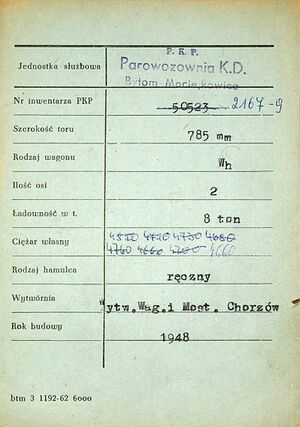 P. K. P.
Jednostka służbowa Parowozownia K.D.
Bytom Maciejkowice
Nr inwentarza PKP 50523 2167-9
Szerokość toru 785 mm
Rodzaj wagonu Wh
Ilość osi 2
Ładowność w t. 8 ton
Ciężar własny 4850 4720 4730 4680
4760 4660 4660
Rodzaj hamulca ręczny
Wytwórnia Wytw.Wag.i Most. Chorzów
Rok budowy 1948
btm 3 1192-62 6000